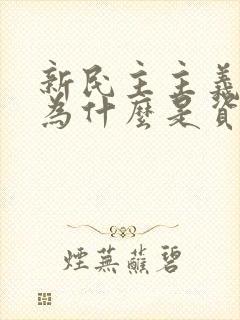 新民主主義
為什麼是資
煙蕪蘸碧